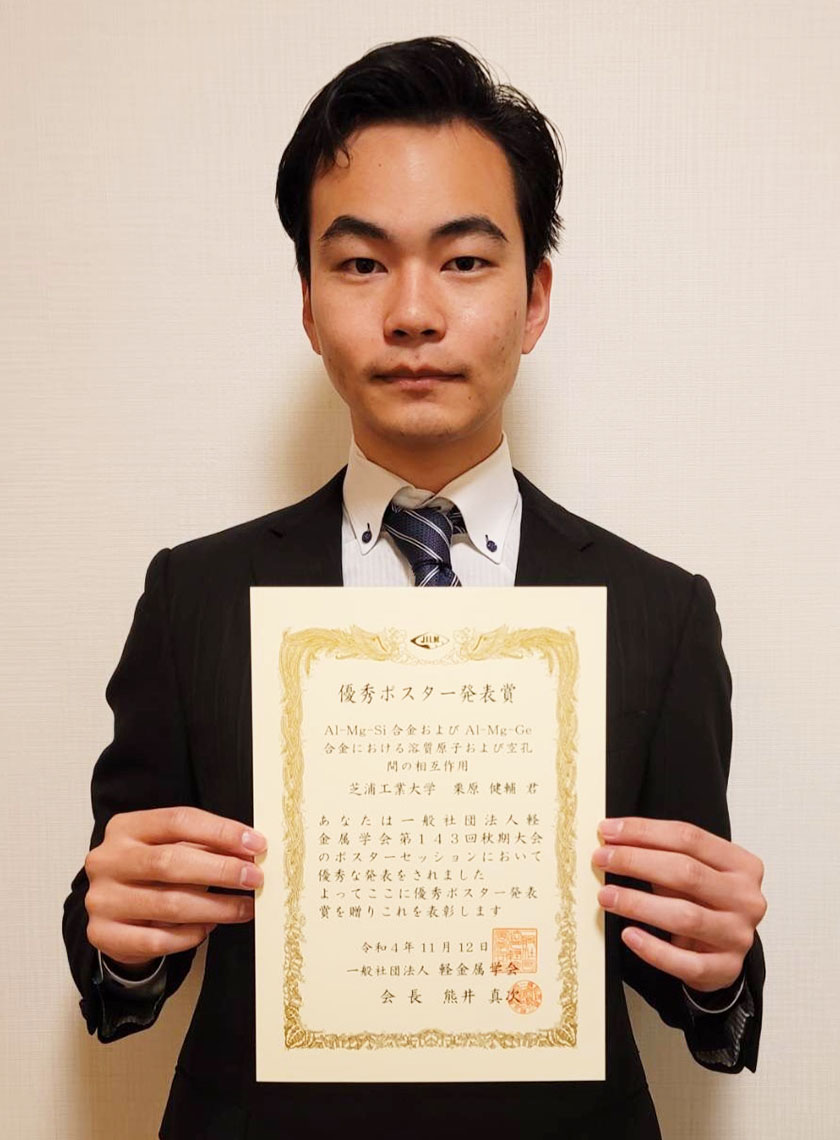 JILM
優秀ポスター発表賞
Al-Mg-Si 合金および Al-Mg-Ge
合金における溶質原子および空孔
間の相互作用
芝浦工業大学 栗原 健輔 君
あなたは一般社団法人軽
金属学会第143回秋期大会
のポスターセッションにおいて
優秀な発表をされました
よってここに優秀ポスター発表
賞を贈りこれを表彰します
令和4年11月12日
一般社団法人 軽金属学会
会長 熊井 真次